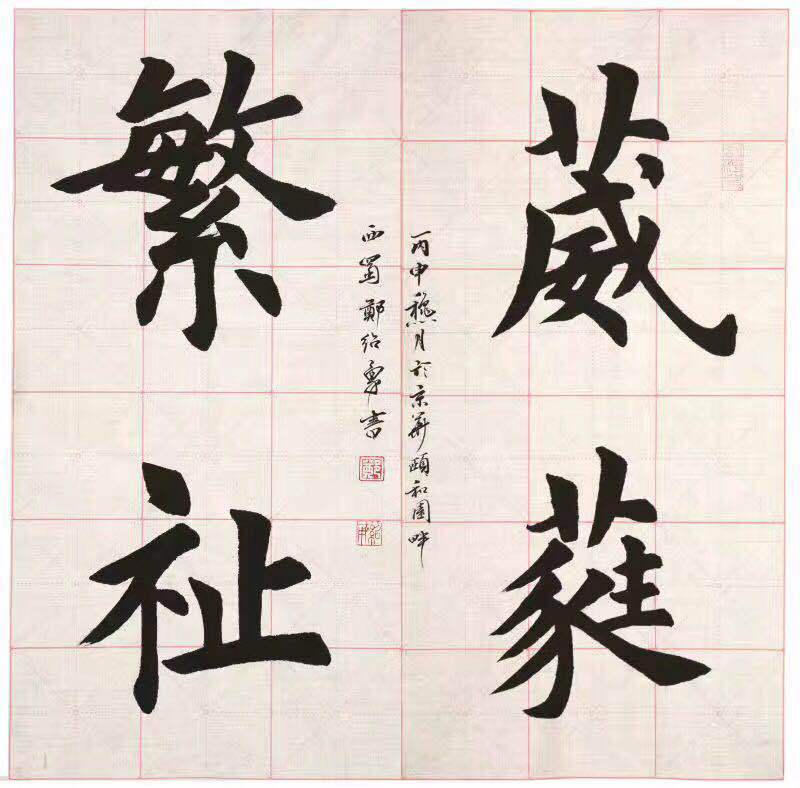 葳蕤
繁祉
丙申龝月於京華頤和園畔
西蜀鄭紹書